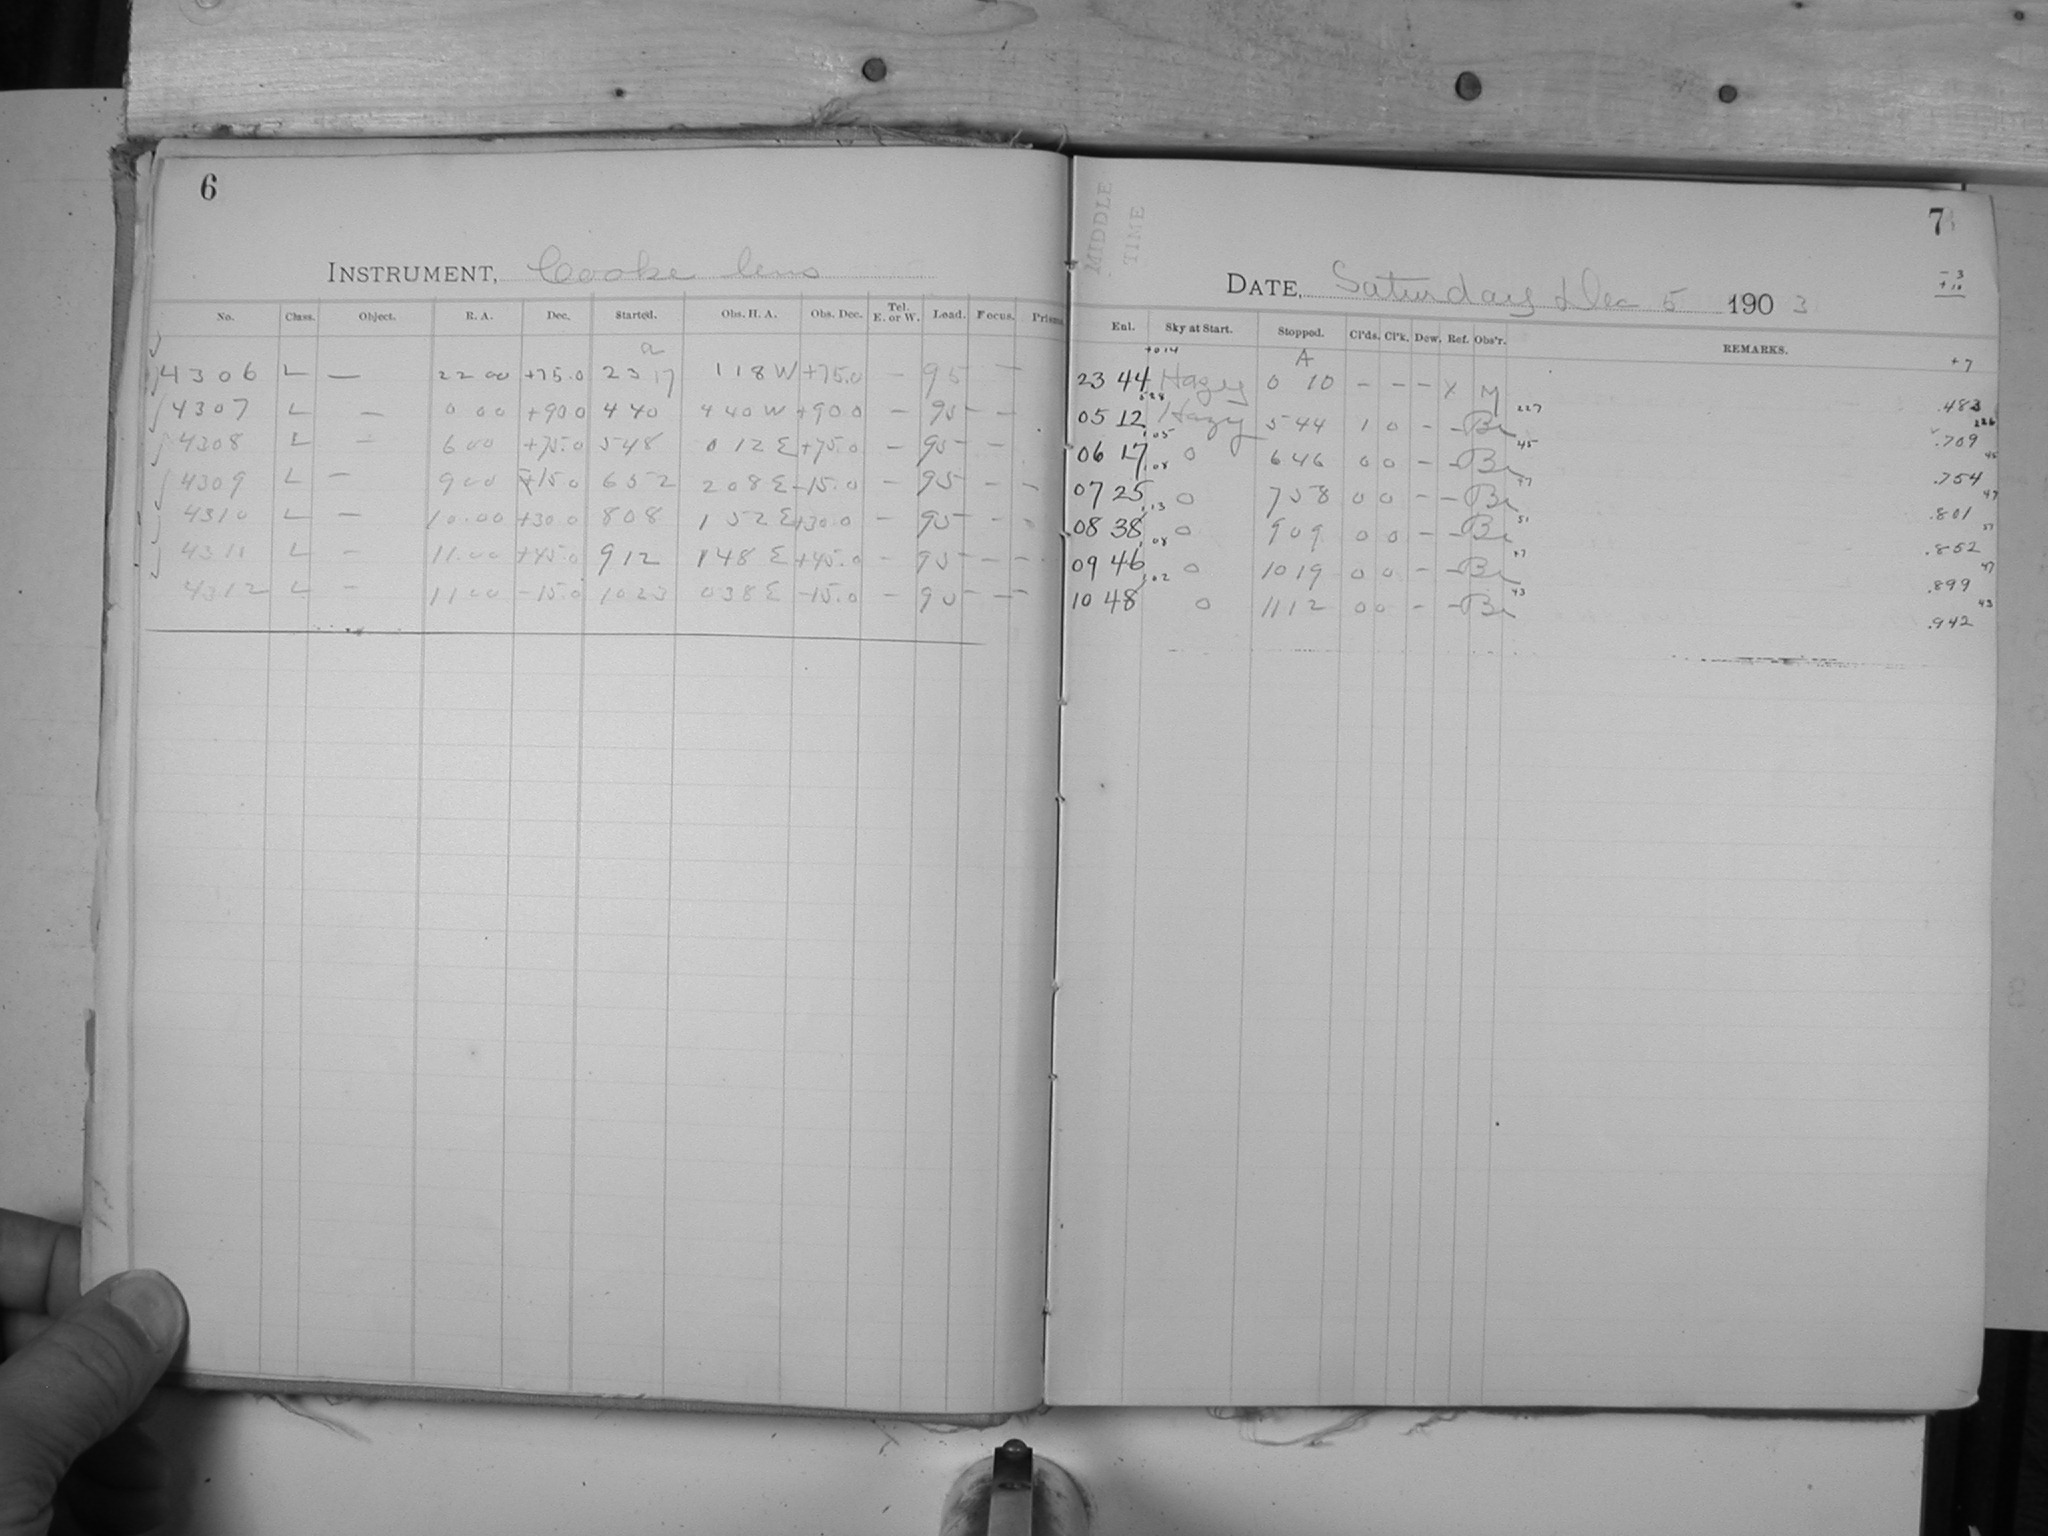 6
INSTRUMENT, Cooke lens
No. Class. Object. R. A. Dec. Started. Obs. H. A. Obs. Dec. Tel. E. or W. Load. Focus. Prisms
a
4306 L — 22 00 +75.0 23 17 1 18 W +75.0 — 95 —
4307 L — 0 00 +90 0 4 40 4 40 W +90 0 — 95 — —
4308 L — 6 00 +75.0 5 48 0 12 E +75.0 — 95 — —
4309 L — 9 00 +15 0 6 52 2 08 E -15.0 — 95 — — —
4310 L — 10.00 +30 0 8 08 1 52 E +30.0 — 95 — —
4311 L — 11.00 +45.0 9 12 1 48 E +45.0 — 95 — — —
4312 L — 11 00 -15.0 10 23 0 38 E -15.0 — 95 — — —
MIDDLE TIME
7
DATE, Saturday Dec 5 1903
- 3
+ 10
Enl. Sky at Start. Stopped. Cl'ds. Cl'k. Dew. Ref. Obs'r. REMARKS.
+014 A +7
23 44 Hazy 0 10 - - - x M .483
028 227 226
05 12 Hazy 5 44 1 0 - - Br .709
1.05 45 45
06 17 0 6 46 0 0 - - Br .754
1.08 47 47
07 25 0 7 58 0 0 - - Br .801
1.13 51 51
08 38 0 9 09 0 0 - - Br .852
1.08 47 47
09 46 0 10 19 0 0 - - Br .899
1.02 43 43
10 48 0 11 12 0 0 - - Br .942